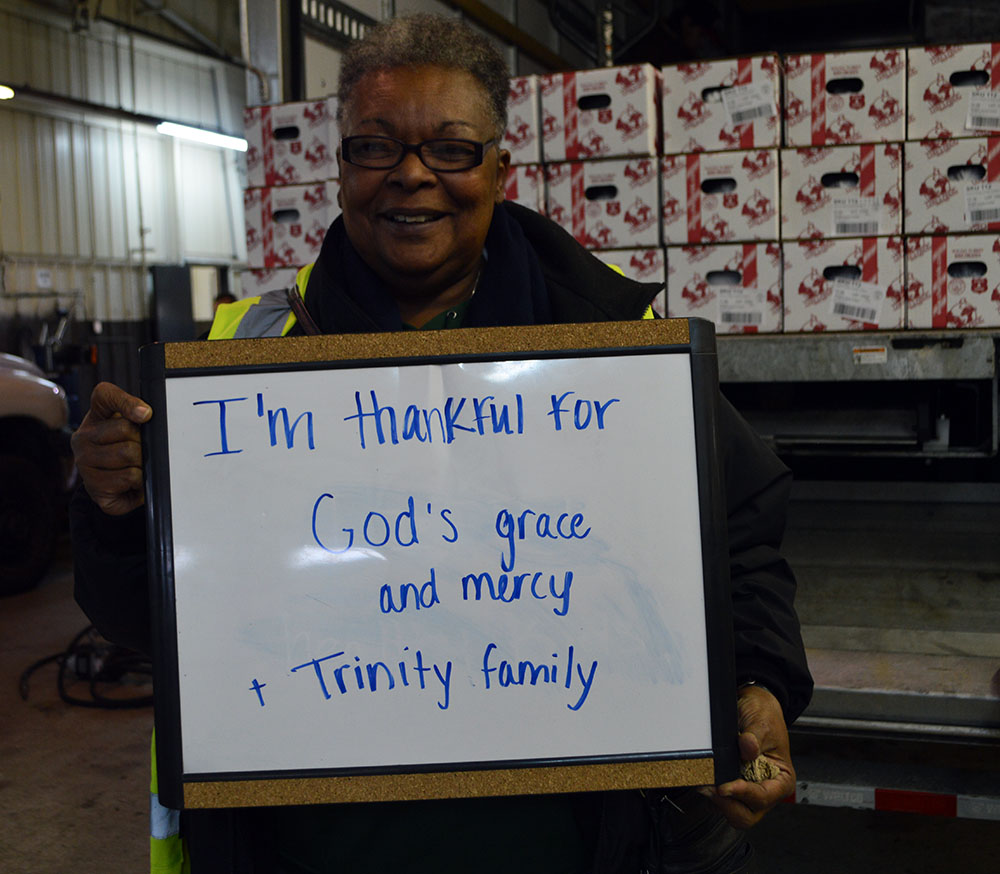 I'm thankful for
God's grace
and mercy
+ Trinity family